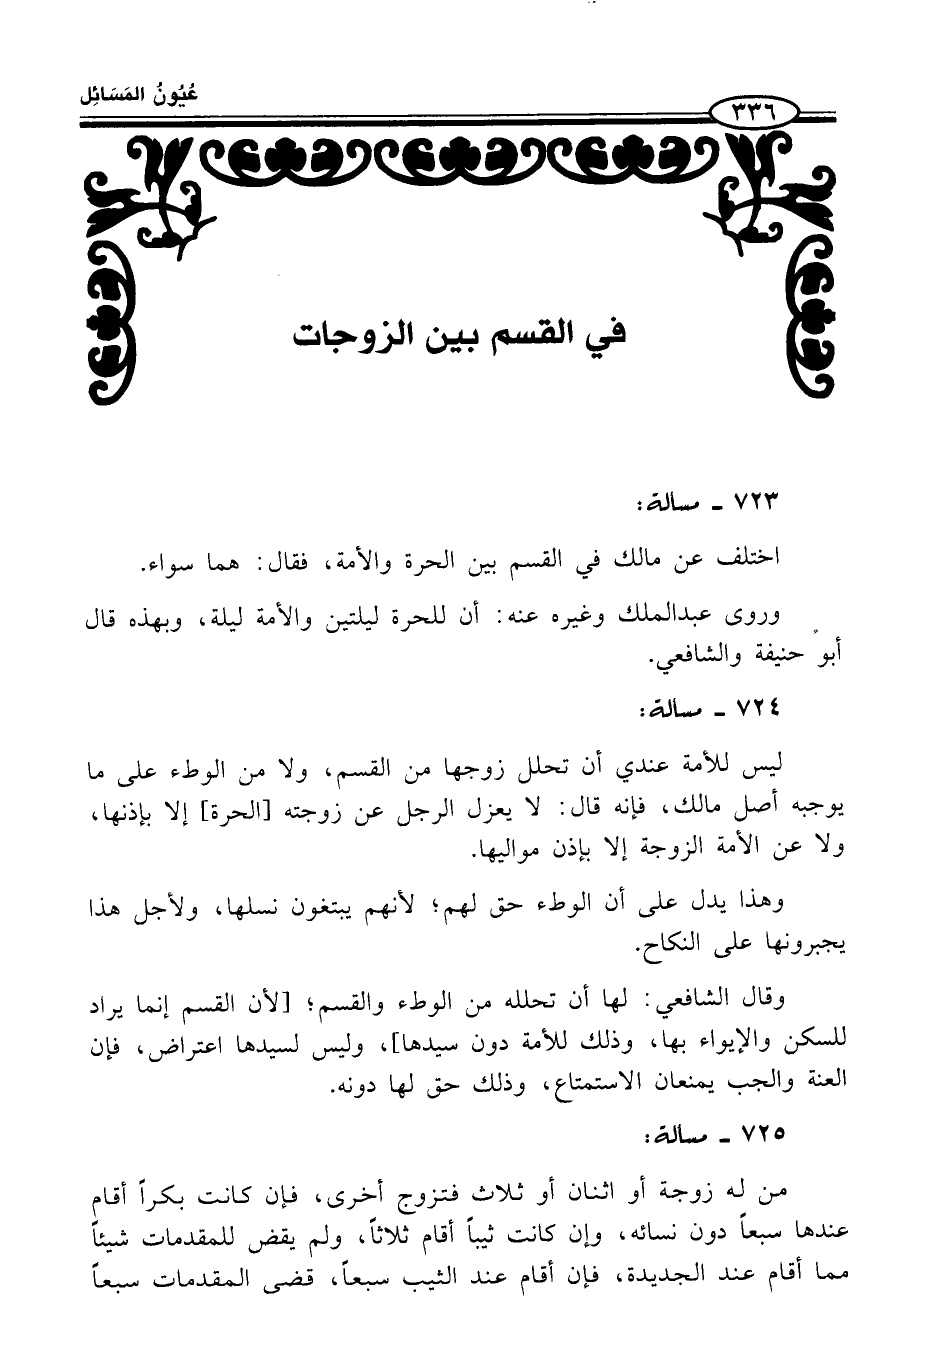 عُيُونُ المَسَائِل
٣٣٦
في القسم بين الزوجات
٧٢٣ ـ مسالة:
اختلف عن مالك في القسم بين الحرة والأمة، فقال: هما سواء.
وروى عبدالملك وغيره عنه: أن للحرة ليلتين والأمة ليلة، وبهذه قال
أبو حنيفة والشافعي.
٧٢٤ ـ مسالة:
ليس للأمة عندي أن تحلل زوجها من القسم، ولا من الوطء على ما
يوجبه أصل مالك، فإنه قال: لا يعزل الرجل عن زوجته [الحرة] إلا بإذنها،
ولا عن الأمة الزوجة إلا بإذن مواليها.
وهذا يدل على أن الوطء حق لهم؛ لأنهم يبتغون نسلها، ولأجل هذا
يجبرونها على النكاح.
وقال الشافعي: لها أن تحلله من الوطء والقسم؛ [لأن القسم إنما يراد
للسكن والإيواء بها، وذلك للأمة دون سيدها]، وليس لسيدها اعتراض، فإن
العنة والجب يمنعان الاستمتاع، وذلك حق لها دونه.
٧٢٥ ـ مسالة:
من له زوجة أو اثنان أو ثلاث فتزوج أخرى، فإن كانت بكراً أقام
عندها سبعاً دون نسائه، وإن كانت ثيباً أقام ثلاثاً، ولم يقض للمقدمات شيئاً
مما أقام عند الجديدة، فإن أقام عند الثيب سبعاً، قضى المقدمات سبعاً